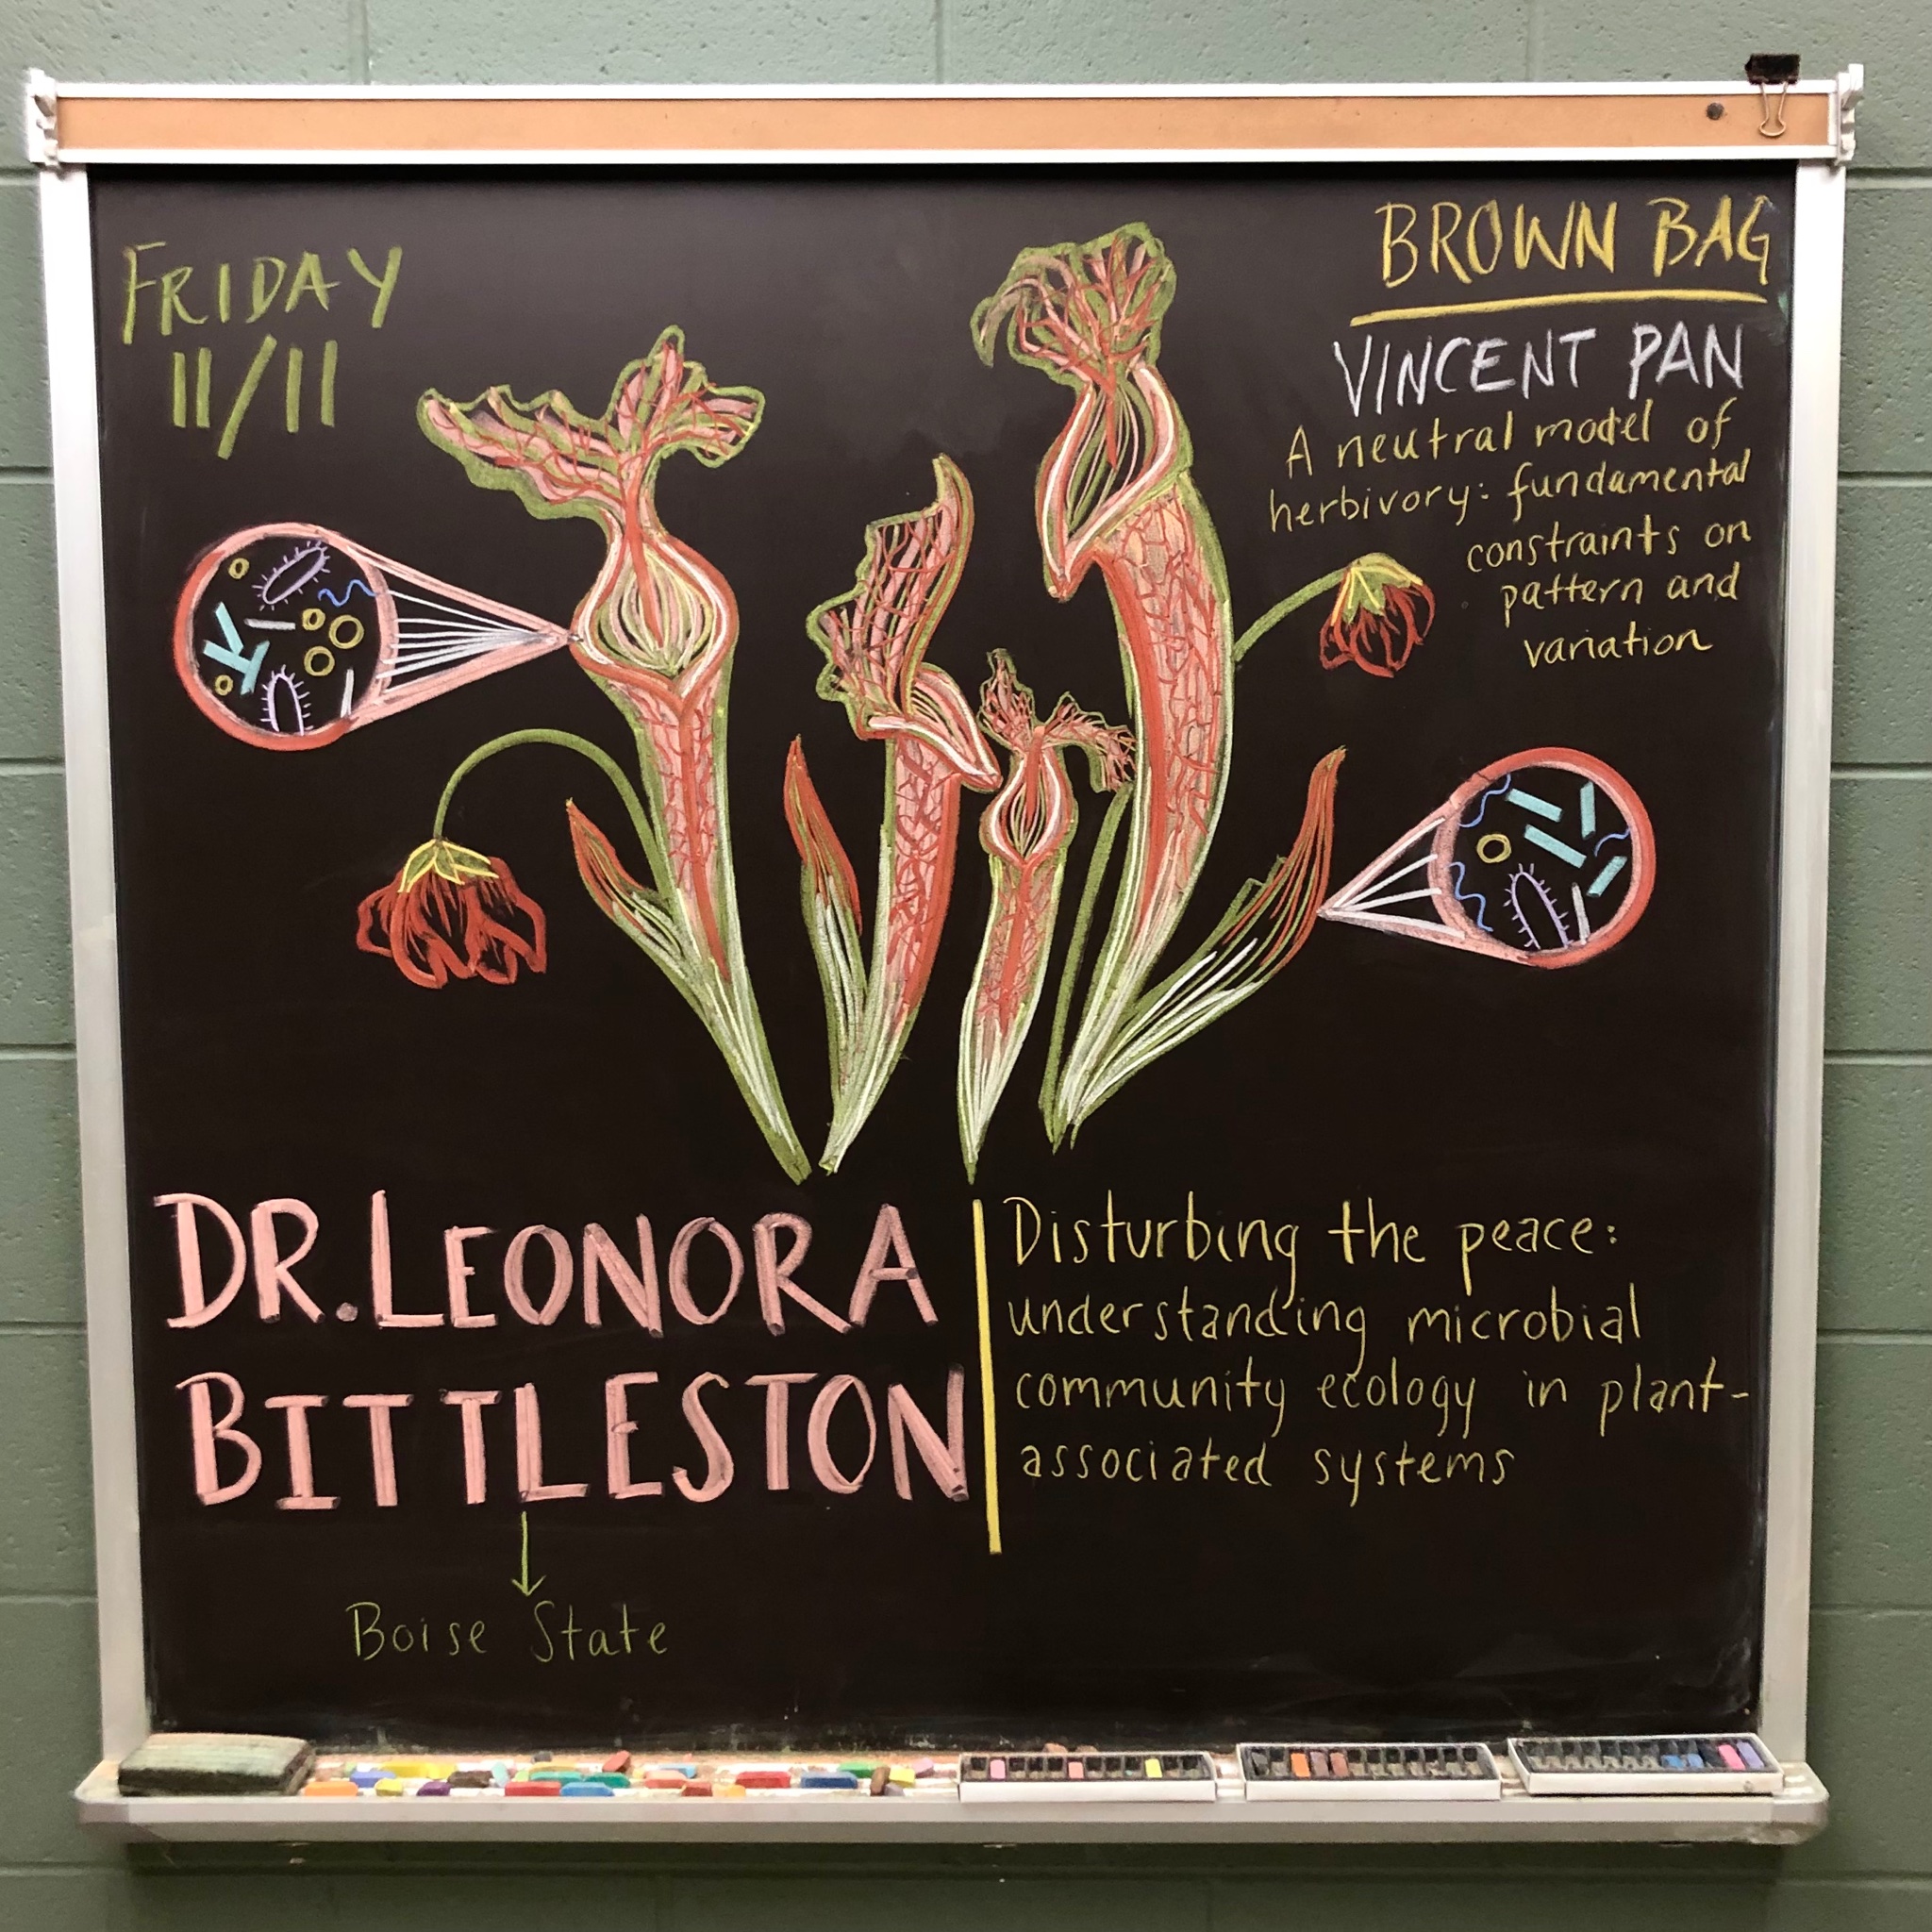 FRIDAY
11/11
BROWN BAG
VINCENT PAN
A neutral model of
herbivory: fundamental
constraints on
pattern and
variation
DR. LEONORA
BITTLESTON
Boise State
Disturbing the peace:
understanding microbial
community ecology in plant-
associated systems